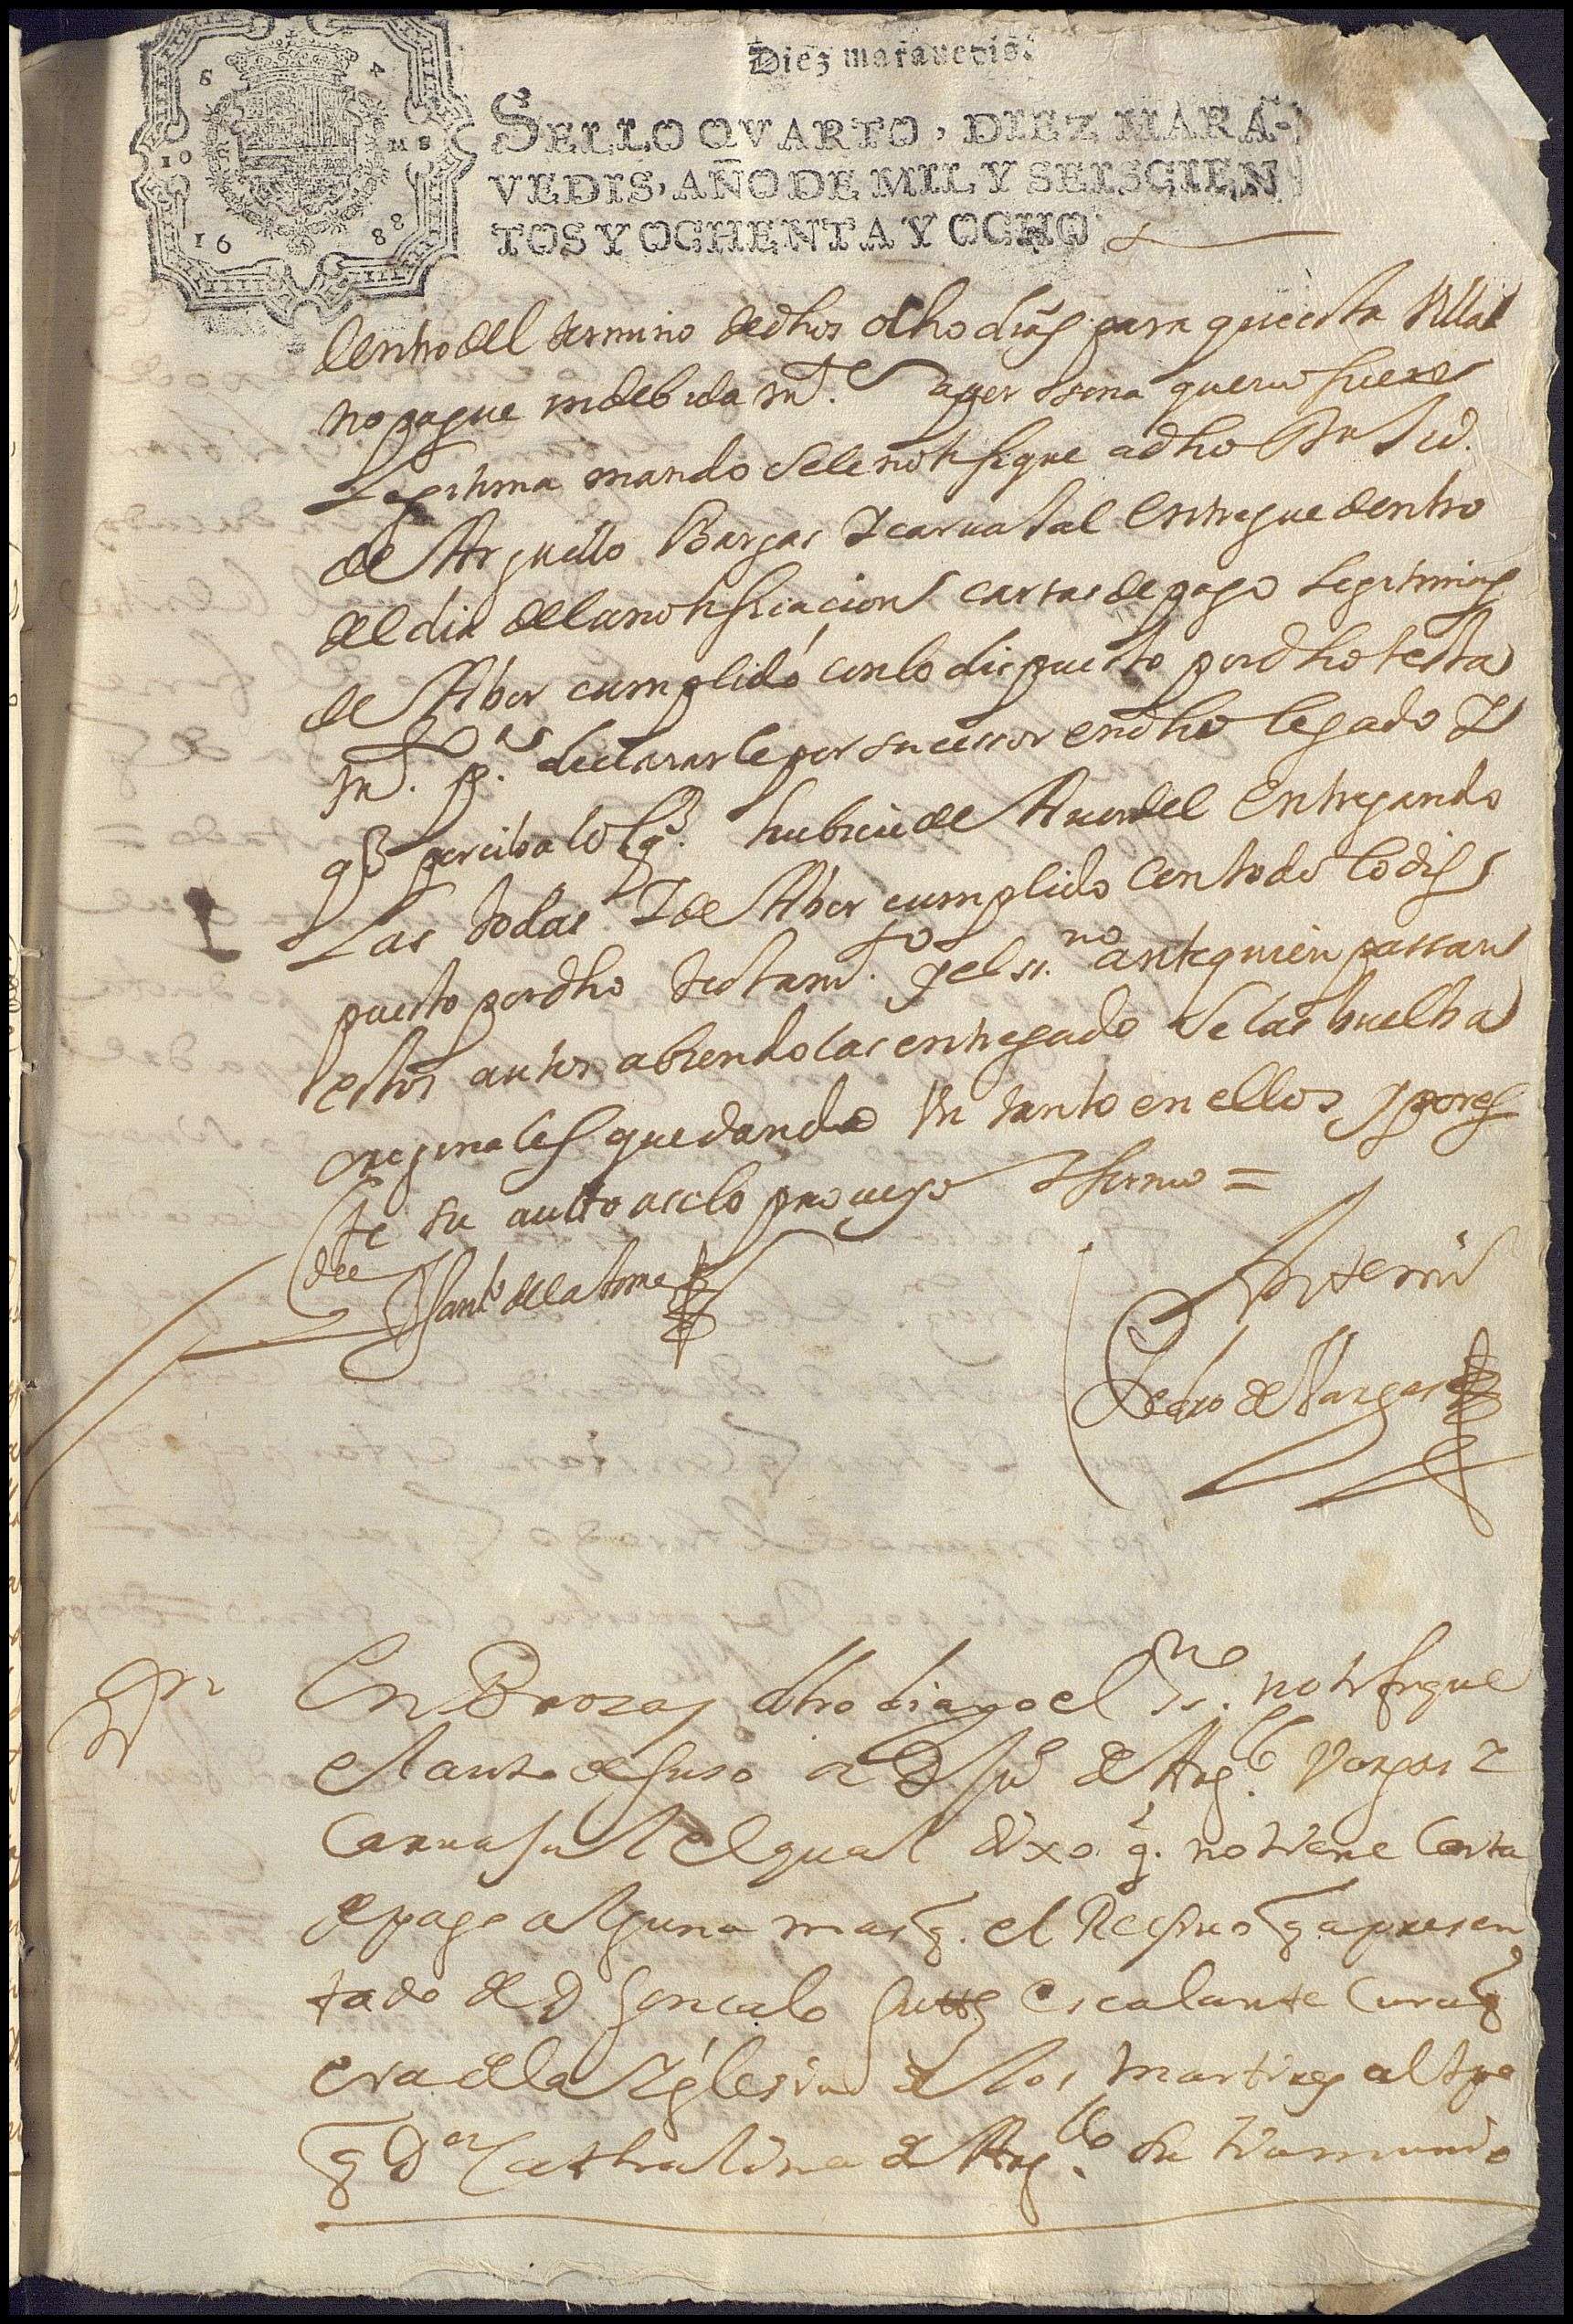 Diez marauedis.
SELLO QVARTO, DIEZ MARA-
VEDIS, AÑO DE MIL Y SEISCIEN
TOS Y OCHENTA Y OCHO
S 4
10 MS
16 88
dentro del termino de dhos ocho dias para que esta Villa
no pague indebidamte. a perssona que no fuere
Lexitima mando se le notifique a dho Dn Ju.
de Arguello Bargas Y caruajal entregue dentro
del dia de la notificacion cartas de pago legitimas
de Aber cumplido con lo dispuesto por dho testa
mto. pa. declararle por sucessor en dho legado Y
q perciba lo q. hubiere de Auer del entregando
Las todas Y de Aber cumplido con todo lo dis
puesto por dho testamto. Y el ss.no ante quien passan
estos autos abiendolas entregado se las buelba
originales quedando Vn tanto en ellos y por es
te su auto asi lo proueyo Y firmo =
Ante mi
Pedro de Vargas
En Brozas dho dia yo el ss.no notifique
el auto de suso a D Ju de Arg.llo Vargas Y
Caruajal el qual dixo q. no tiene Carta
de pago alguna mas q. el Reciuo q a presen
tado de D Goncalo Gutts escalante Cura q
era de la Yglesia de los martires al tpo
q Da Cathalina de Arg.llo su